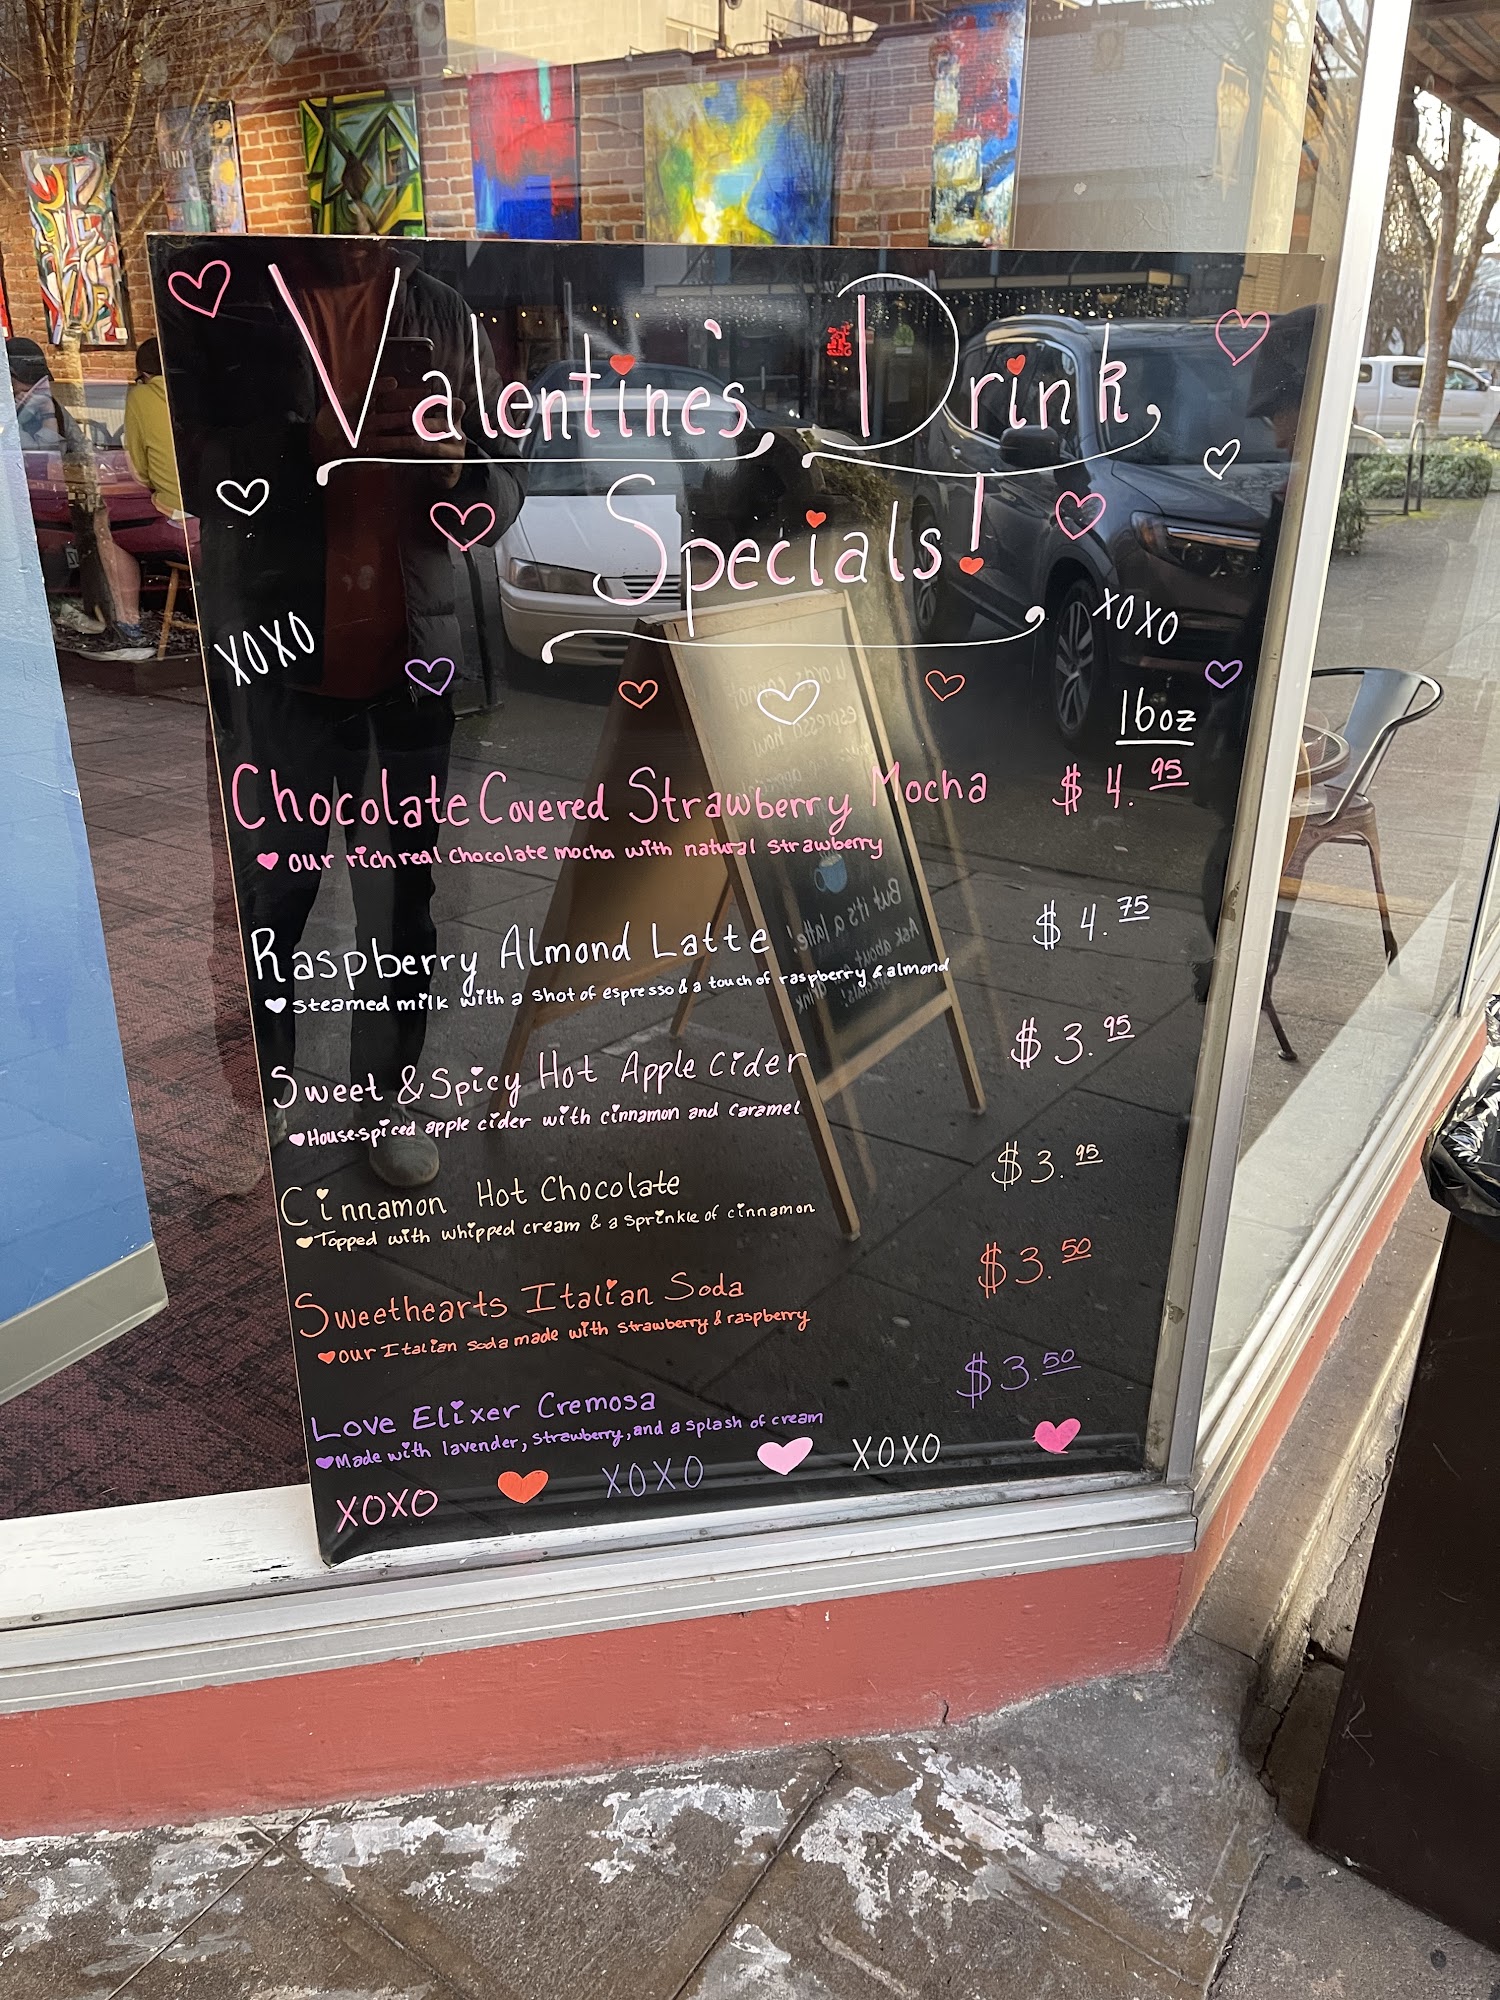 Valentine's Drink
Specials!
XOXO
XOXO
16oz
Chocolate Covered Strawberry Mocha $4.95
our rich real chocolate mocha with natural strawberry
Raspberry Almond Latte $4.75
steamed milk with a shot of espresso & a touch of raspberry & almond
Sweet & Spicy Hot Apple Cider $3.95
House-spiced apple cider with cinnamon and caramel
Cinnamon Hot Chocolate $3.95
Topped with whipped cream & a sprinkle of cinnamon
Sweethearts Italian Soda $3.50
our Italian soda made with strawberry & raspberry
Love Elixer Cremosa $3.50
Made with lavender, strawberry, and a splash of cream
XOXO XOXO XOXO
But it's a latte!
Ask about